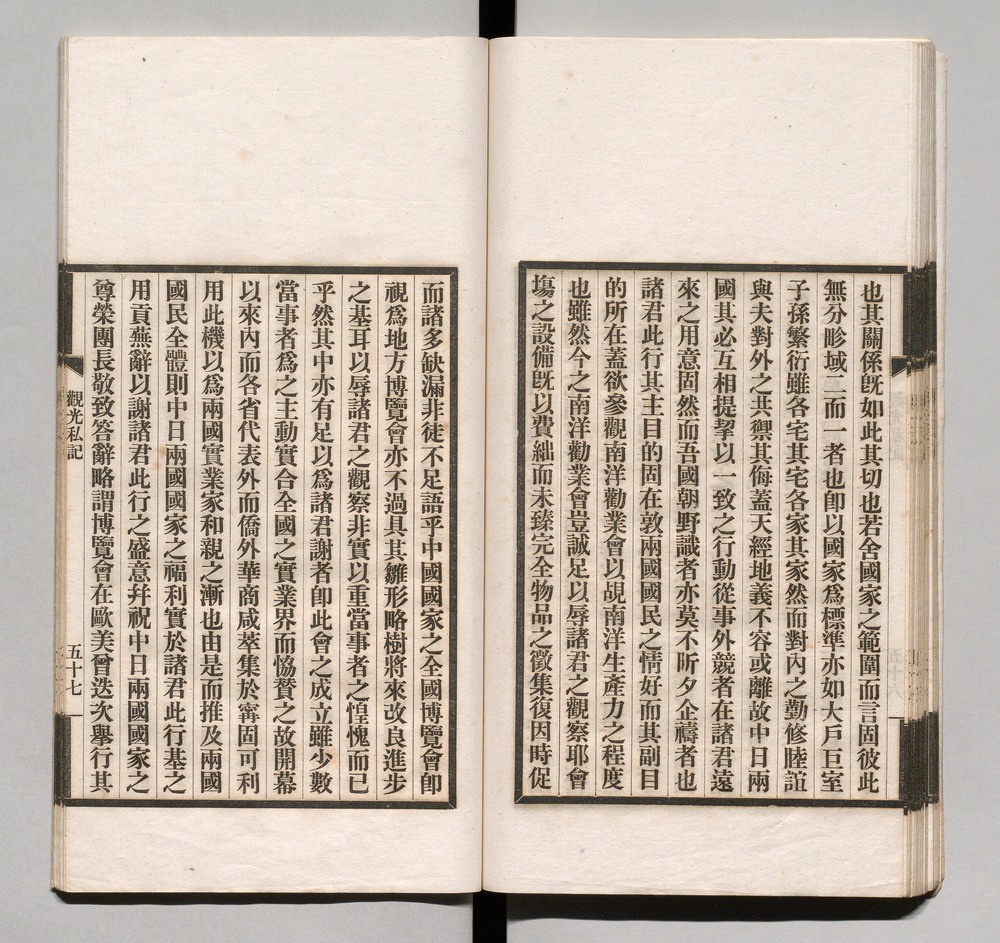 也其關係旣如此其切也若舍國家之範圍而言固彼此
無分畛域二而一者也卽以國家爲標準亦如大戶巨室
子孫繁衍雖各宅其宅各家其家然而對內之勤修睦誼
與夫對外之共禦其侮蓋天經地義不容或離故中日兩
國其必互相提挈以一致之行動從事外競者在諸君遠
來之用意固然而吾國朝野識者亦莫不昕夕企禱者也
諸君此行其主目的固在敦兩國國民之情好而其副目
的所在蓋欲參觀南洋勸業會以覘南洋生產力之程度
也雖然今之南洋勸業會豈誠足以辱諸君之觀察耶會
塲之設備旣以費絀而未臻完全物品之徵集復因時促
而諸多缺漏非徒不足語乎中國國家之全國博覽會卽
視爲地方博覽會亦不過具其雛形略樹將來改良進步
之基耳以辱諸君之觀察非實以重當事者之惶愧而已
乎然其中亦有足以爲諸君謝者卽此會之成立雖少數
當事者爲之主動實合全國之實業界而恊贊之故開幕
以來內而各省代表外而僑外華商咸萃集於甯固可利
用此機以爲兩國實業家和親之漸也由是而推及兩國
國民全體則中日兩國國家之福利實於諸君此行基之
用貢蕪辭以謝諸君此行之盛意幷祝中日兩國國家之
尊榮團長敬致答辭略謂博覽會在歐美曾迭次舉行其
觀光私記
五十七